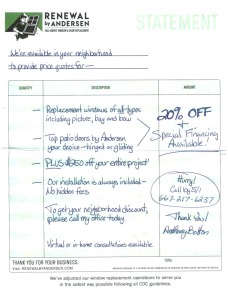 RENEWAL
by ANDERSEN
FULL-SERVICE WINDOW & DOOR REPLACEMENT
STATEMENT
We're available in your neighborhood
to provide price quotes for—
QUANTITY
DESCRIPTION
AMOUNT
— Replacement windows of all types
including picture, bay and bow
— Top patio doors by Andersen
your choice - hinged or gliding
— PLUS $350 off your entire project
— Our installation is always included -
No hidden fees
— To get your neighborhood discount,
please call my office today.
Virtual or in-home consultations available.
20% OFF
+
Special Financing
Available!
Hurry!
Call by 5/1
667-217-6237
Thank you!
Anthony
THANK YOU FOR YOUR BUSINESS.
Visit: RENEWALBYANDERSEN.COM
TOTAL
We've adjusted our window replacement operations to serve you
in the safest way possible following all CDC guidelines.